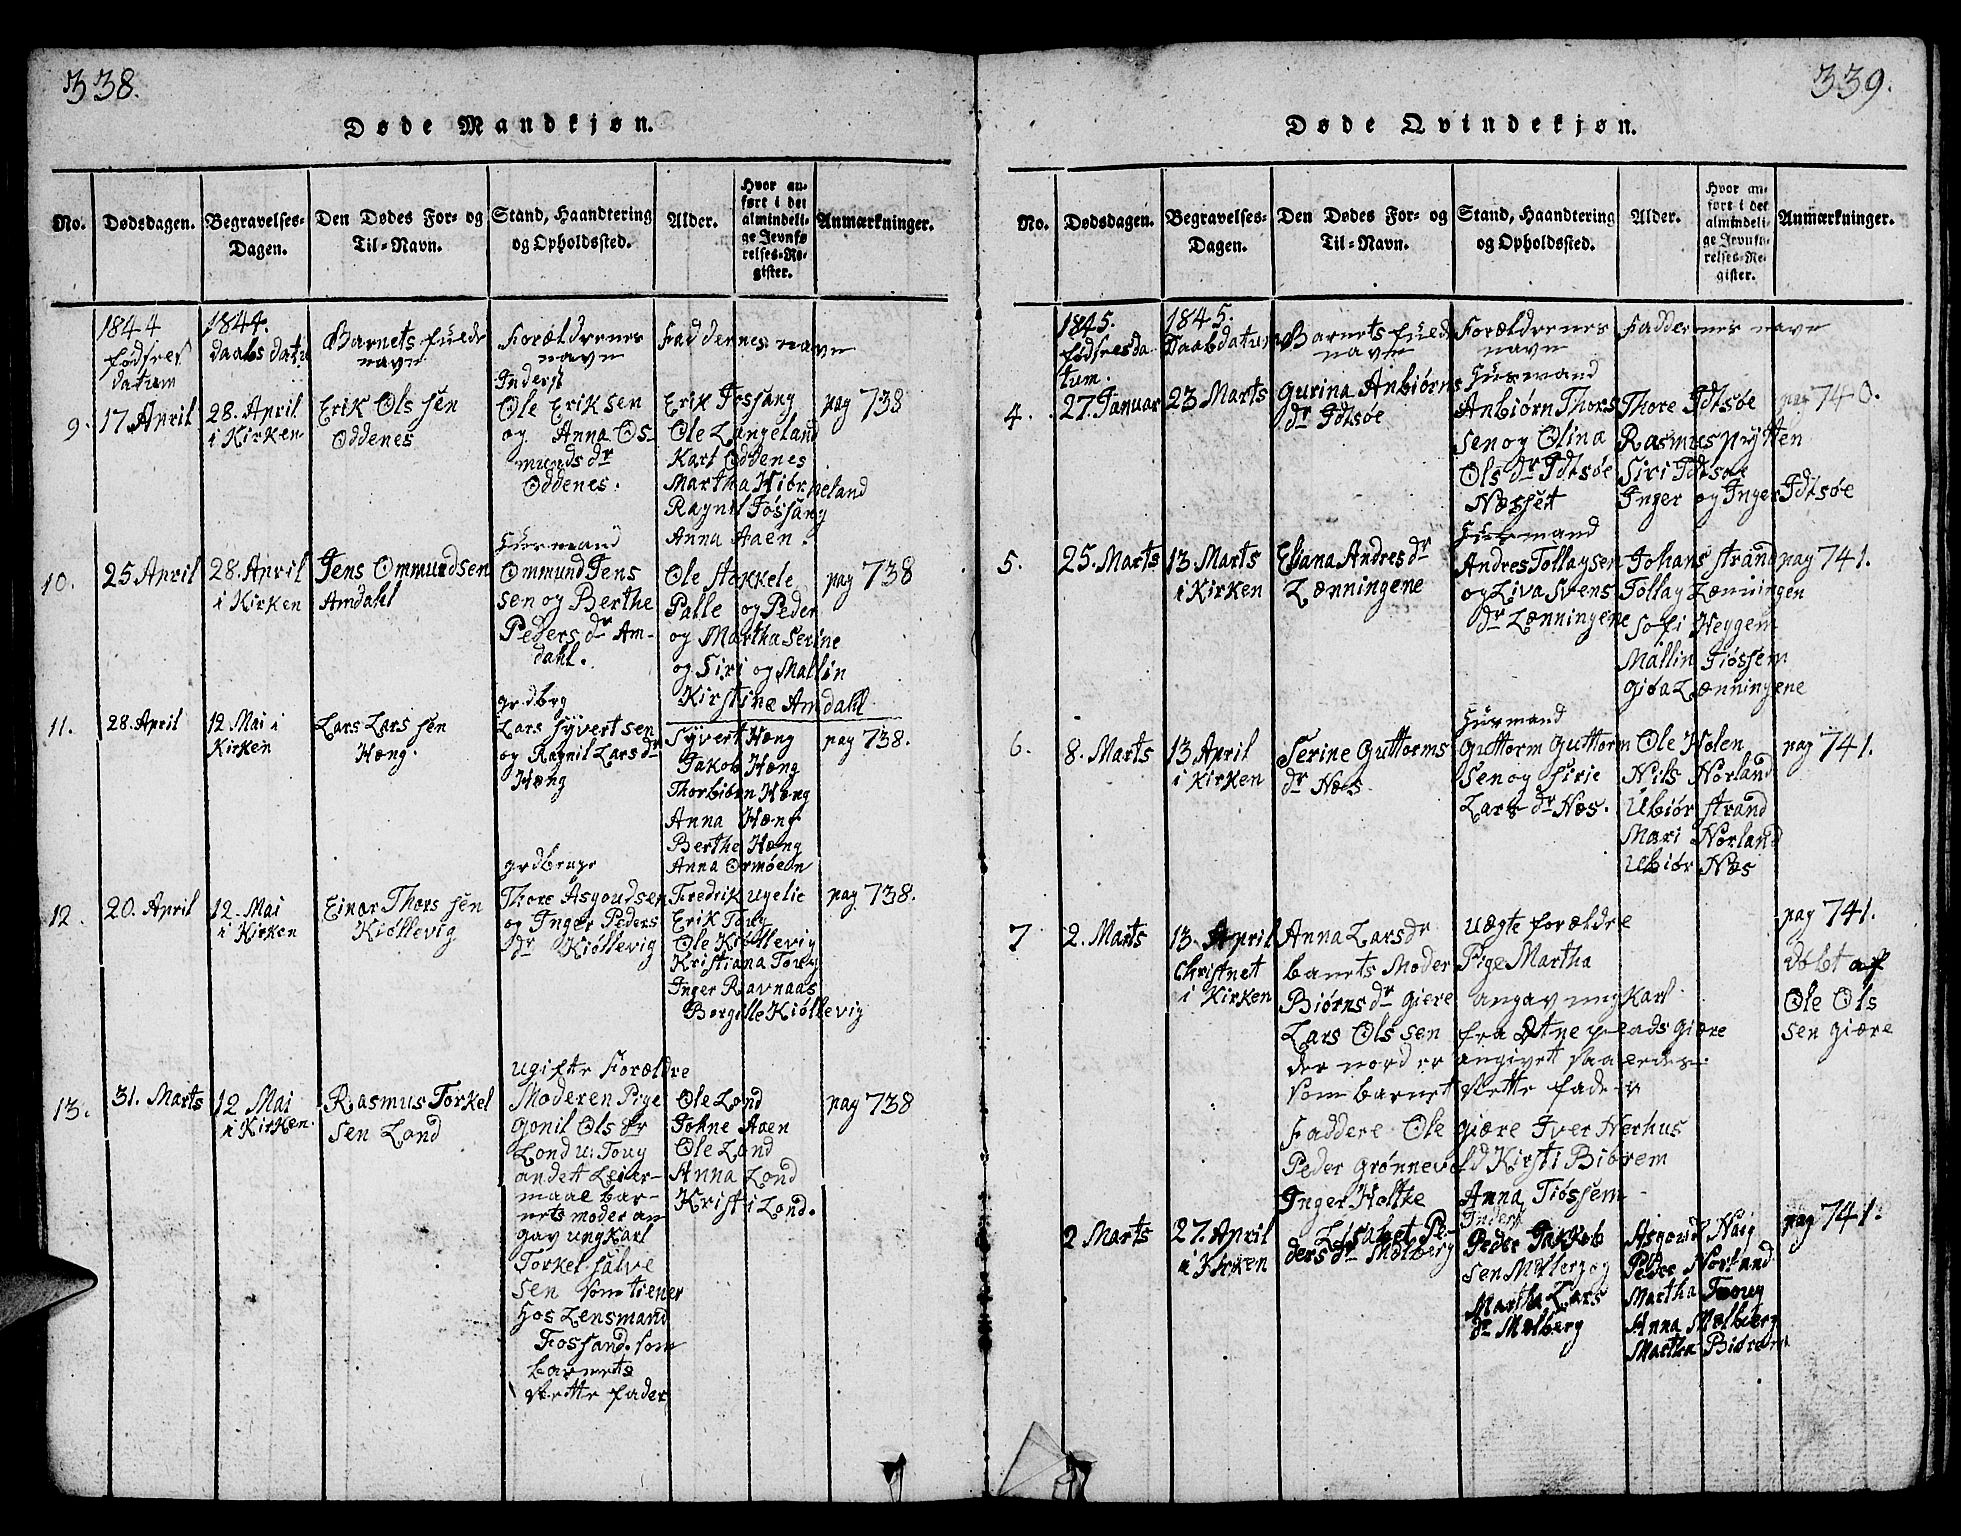 338.
Døde Mandkjøn.
No.
Dødsdagen.
Begravelses-
Dagen.
Den Dødes For- og
Til-Navn.
Stand, Haandtering
og Opholdssted.
Alder.
Hvor an-
ført i det
almindeli-
ge Jevnfø
relses-Re-
gister.
Anmærkninger.
1844
fødsels
datum
1844.
daabs datu
Barnets fulde
navn
Forældrenes
navn
Faddernes navn
9.
17 April
28. April
i Kirken
Erik Ols sen
Oddenes
Inderst
Ole Erik sen
og Anna Os-
munds dr
Oddenes.
Erik Fossang
Ole Langeland
Kari Oddenes
Martha Hiorneland
Ragnil Fossang
Anna Aaen.
pag 738
10.
25 April
28. April
i Kirken
Jens Ommundsen
Amdahl
Huusmand
Ommund Jens
sen og Berthe
Peders dr Am-
dahl.
Ole Stokkele
Palle og Peder
og Martha Serine
og Siri og Mallin
Kirstine Amdahl
pag 738
11.
28. April
12 Mai i
Kirken
Lars Lars sen
Høng.
grdbrg
Lars Syvert sen
og Ragnil Lars dr
Høng
Syvert Høng
Jakob Høng
Thorbiøen Høng
Anna Høng
Berthe Høng
Anna Ormøen
pag 738.
12.
20. April
12. Mai
i Kirken
Einar Thors sen
Kiøllevig
grdbruge
Thore Asgoudsen
og Inger Peders
dr Kiøllevig
Fredrik ugelie
Erik Touy
Ole Kiøllevig
Kristiana Touy
Inger Ravnaas
Borgille Kiøllevig
pag 738.
13.
31. Marts
12 Mai
i Kirken.
Rasmus Torkel
sen Lond
ugifte Forældre
Moderen Pige
Gonil Ols dr
Lond u: Touy
andet Leier-
maal bar-
nets moder an
gav ungkarl
Torkel Salve
sen som tiener
hos Lensmand
Fossand. som
barnets
rette fader
Ole Lond
Johne Aaen
Ole Lond
Anna Lond
Kristi Lond.
pag 738
339.
Døde Qvindekjøn.
No.
Dødsdagen.
Begravelses-
Dagen.
Den Dødes For- og
Til-Navn.
Stand, Haandtering
og Opholdssted.
Alder.
Hvor an-
ført i det
almindeli-
ge Jevnfø-
relses-Re-
gister.
Anmærkninger.
1845.
fødselsda
tum.
1845.
Daabdatum
Barnets fulde
navn
Forældrenes
navn
Faddernes navn
4.
27. Januar
23 Marts
Gurina Anbiørns
dr Idtsøe
Huusmand
Anbiørn Thors
sen og Olina
Ols dr Idtsøe
Næsset
Thore Idtsøe
Rasmus nytten
Siri Idtsøe
Inger og Inger Idtsøe
pag 740.
5.
25. Marts
13 Marts
i Kirken
Eliana Andres dr
Lænningene
Huusmand
Andres Tollagsen
og Liva Svens
dr Lænningene
Johans strand
Tollag Lænningen
Sofi Heggem
Mallin Tiøssem
Giøa Lænningene
pag 741.
6.
8. Marts
13 April
i Kirken
Serine Guttorms
dr Næs
Huusmand
Guttorm Guttorm
sen og Sirie
Lars dr Næs.
Ole Holen
Nils Norland
Ubiør strand
Mari Norland
Ubiør Næs
pag 741.
7
2. Marts
13. April
Christnet
i Kirken
Anna Lars dr
barnets Moder
Biørns dr Giere
Lars Ols sen
uægte forældre
Pige Martha
angav ung Karl
fra præstegiære
som barnet rette fader
Faddere Ole Giære Iver Nerhus
Peder Grønnevold Kirsti Biørem
Inger Holtke Anna Tiøssem
pag 741.
døbt af
Ole Ols
sen Giære
2 Marts
27. April
i Kirken
Lisabet Pe-
ders dr Mølberg
Inders
Peder Jakkob
sen Mølberg og
Martha Lars
dr Mølberg
Asgoud Haig
Peder Norland
Martha Touy
Anna Mølberg
Martha Biørem
pag 741.